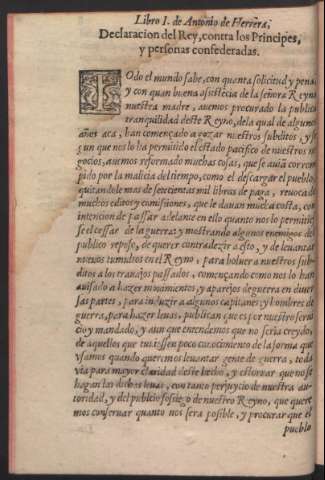 Libro I. de Antonio de Herrera,
Declaracion del Rey, contra los Principes,
y personas confederadas.
TOdo el mundo sabe, con quenta solicitud y pena,
y con quan buena asistẽcia de la señora Reyna
nuestra madre, auemos procurado la publica
tranquilidad deste Reyno, de la qual de algunos
años aca, han començado a gozar nuestros subditos, y se
gun que nos lo ha permitido el estado pacifico de nuestros ne
gocios, auemos reformado muchas cosas, que se auiã corrom
pido por la malicia del tiempo, como el descargar el pueblo
quitandole mas de setecientas mil libras de pagas, reuocado
muchos editos y comisiones, que le dauan mucha costa, con
intencion de passar adelante en ello quanto nos lo permitiesse
se el cessar de la guerra, y mostrando algunos enemigos del
publico reposo, de querer contradezir a esto, y de leuantar
nueuos tumultos en el Reyno, para boluer a nuestros sub
ditos a los trabajos passados, començando como nos lo han
auisado a hazer mouimientos, y aparejos de guerra en diuer
sas partes, para induzir a algunos capitanes y hombres de
guerra, para hazer leuas, publican que es por nuestro serui
cio y mandado, y aun que entendemos que no seria creydo,
de aquellos que tuuiessen poco conocimiento de la forma que
vsamos quando queremos leuantar gente de guerra, toda
via para mayor claridad deste hecho, y estoruar que no se
hagan las dichas leuas, con tanto perjuyzio de nuestra au-
toridad, y del publico sossiego de nuestro Reyno, que quere
mos conseruar quanto nos sera possible, y procurar que el
pueblo